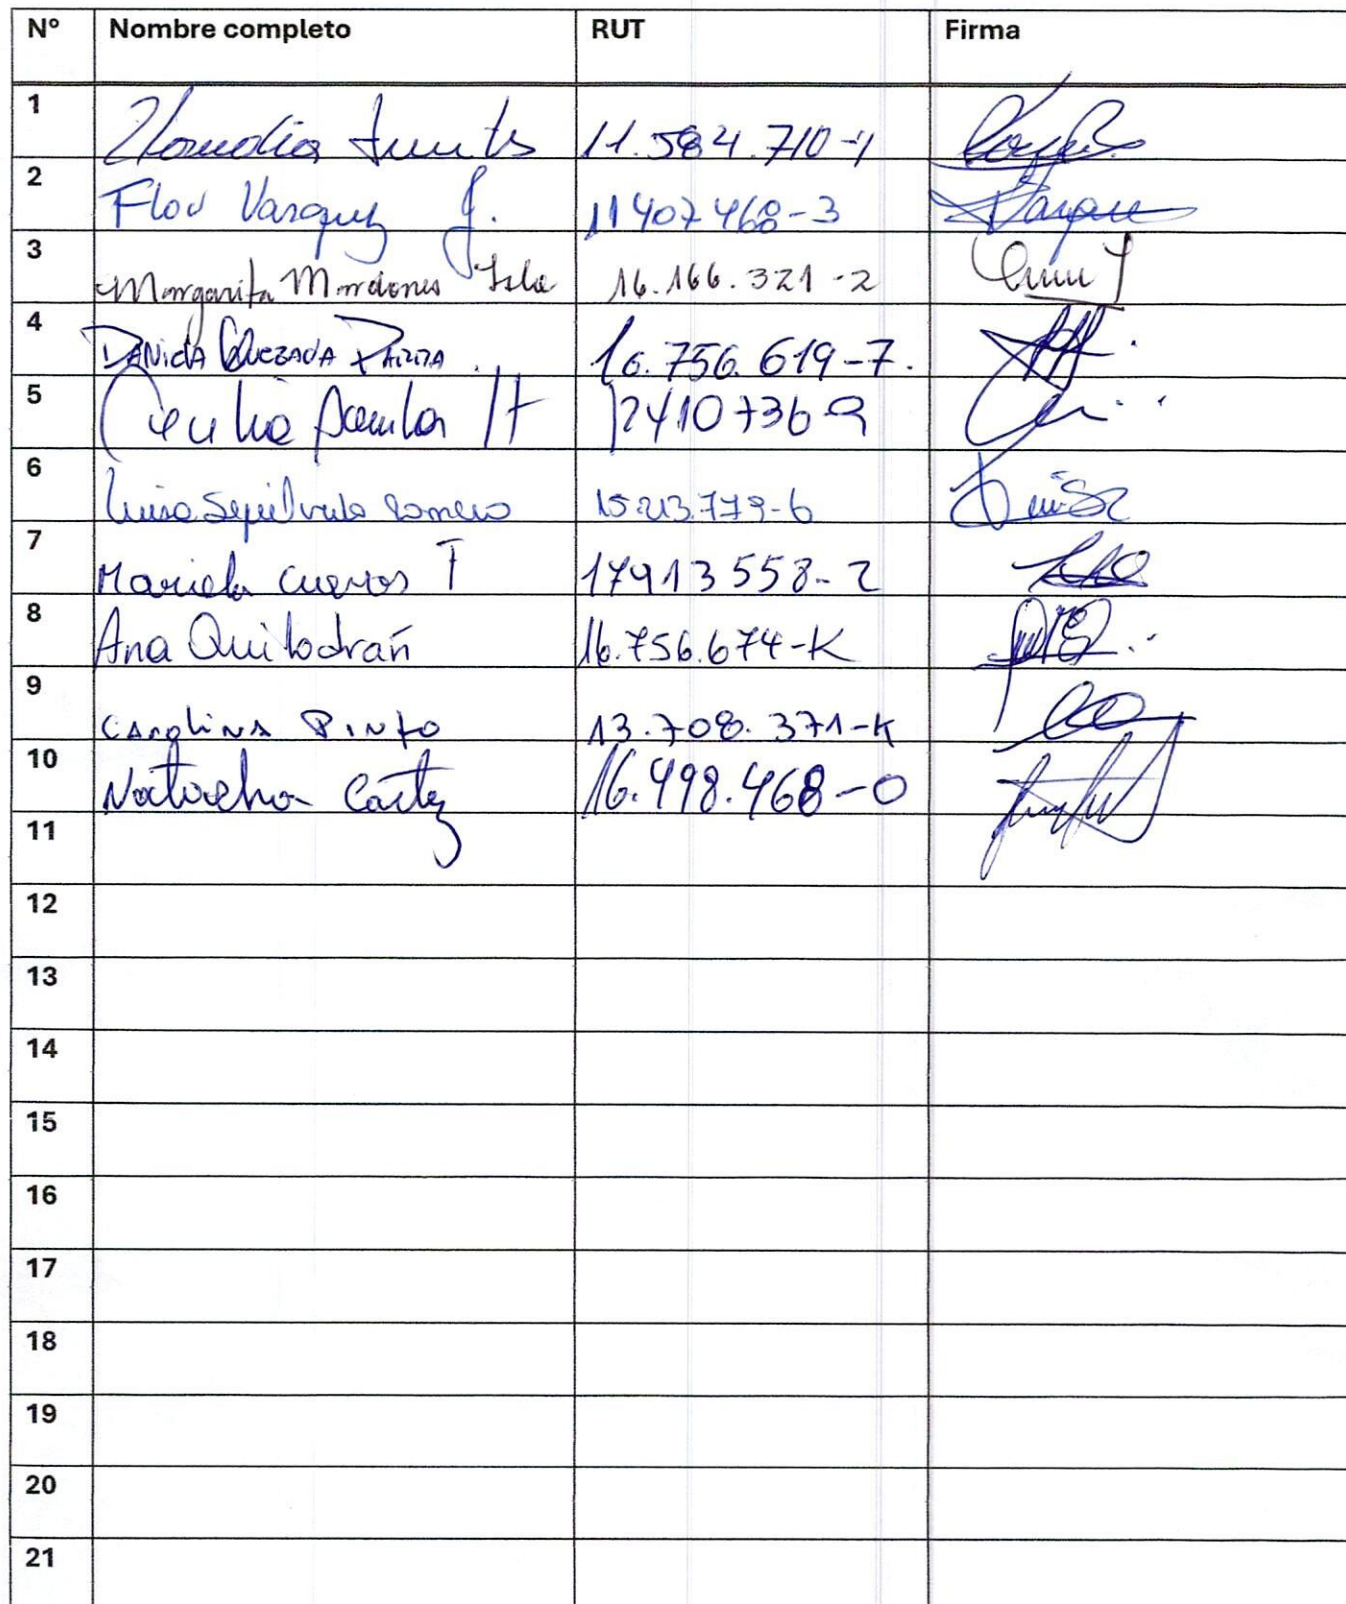 N° Nombre completo RUT Firma
1 Claudia Fuentes 11.584.710-4
2 Flor Vasquez J. 11407468-3
3 Margarita Mardones Isla 16.166.321-2
4 Daniela Quezada 16.756.619-7.
5 Cecilia H 12410736-9
6 Luisa Sepúlveda Romero 15.213.779-6
7 Mariela Cuevas T 17913558-2
8 Ana Quilodrán 16.756.674-K
9 Carolina Pinto 13.708.371-K
10 Natacha 16.498.468-0
11
12
13
14
15
16
17
18
19
20
21